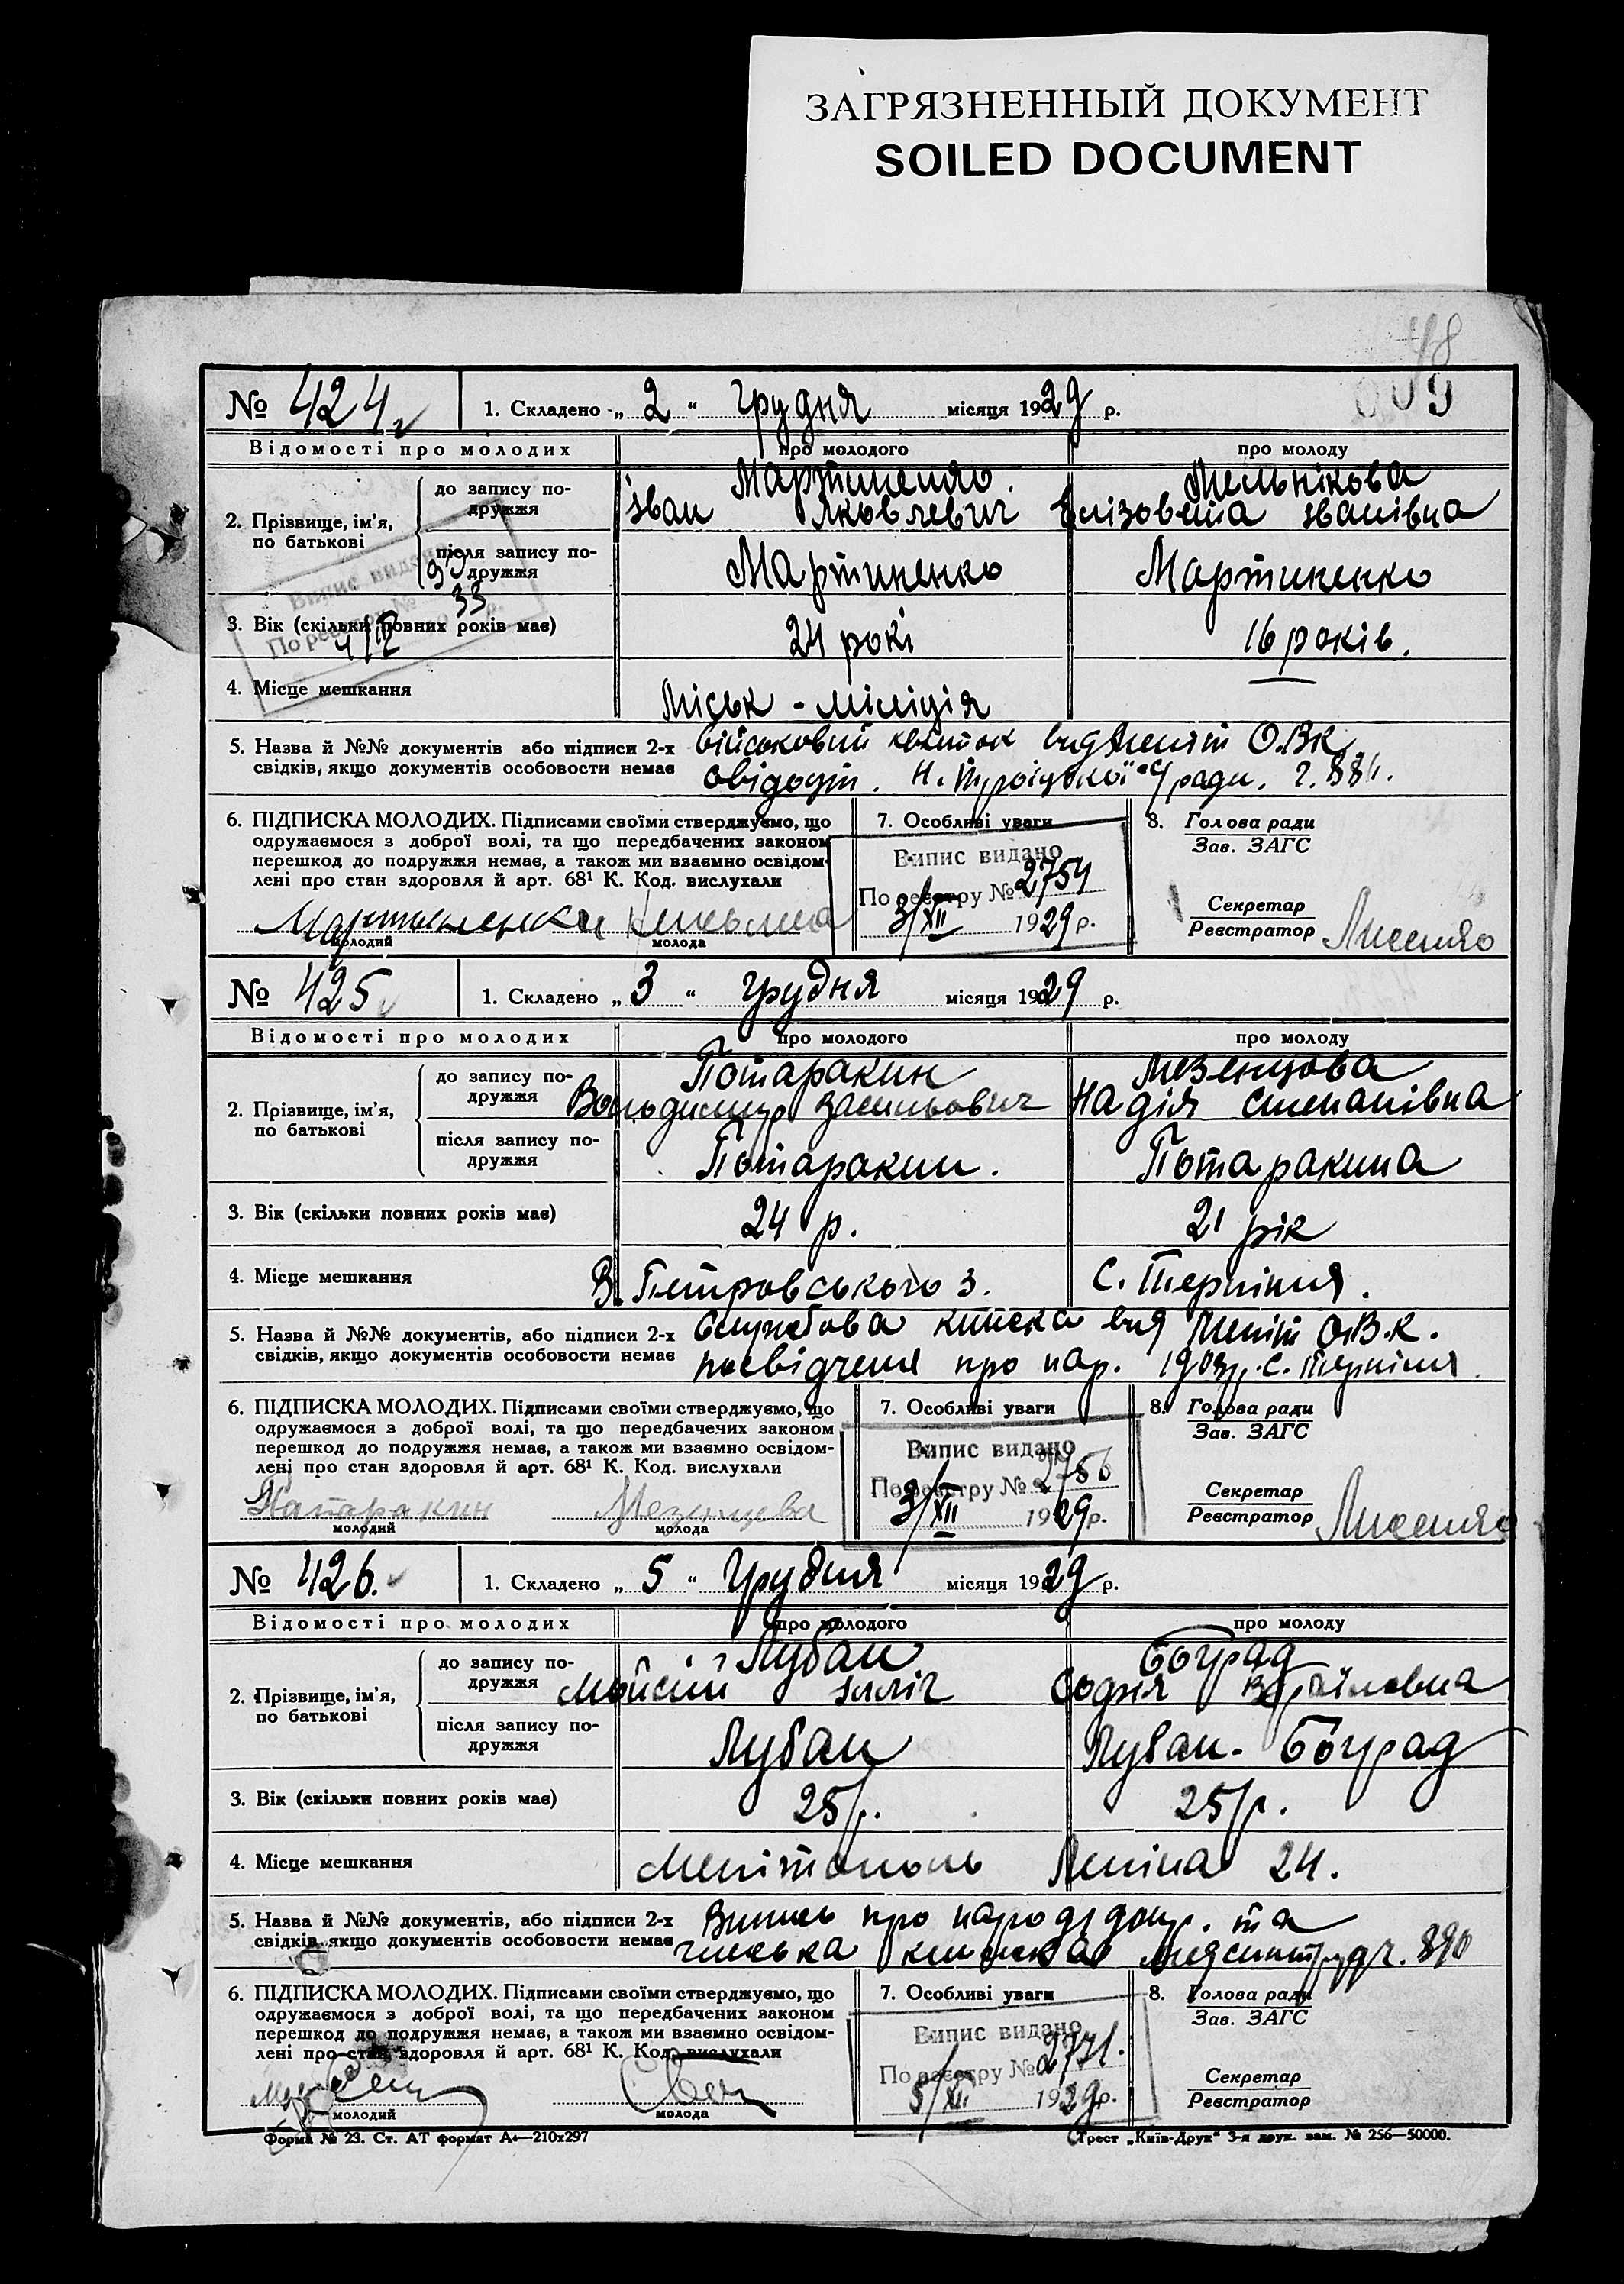 ЗАГРЯЗНЕННЫЙ ДОКУМЕНТ
SOILED DOCUMENT
№ 424 1. Складено „ 2 “ грудня місяця 1929 р.
Відомості про молодих про молодого про молоду
2. Прізвище, ім'я, по батькові
до запису подружжя Мартиненко Мельнікова
Іван Яковлевич Єлізовета Іванівна
після запису подружжя Мартиненко Мартиненко
Випис видано
По реєстру №
33
3. Вік (скільки повних років має) 24 рокі 16 років.
4. Місце мешкання Міськ - міліція
5. Назва й №№ документів або підписи 2-х військовий квиток вид Меліт О.В.К.
свідків, якщо документів особовости немає свідоцт. Н. Троїцької с/ради. 2. 886.
6. ПІДПИСКА МОЛОДИХ. Підписами своїми стверджуємо, що
одружаємося з доброї волі, та що передбачених законом
перешкод до подружжя немає, а також ми взаємно освідом-
лені про стан здоров'я й арт. 68¹ К. Код. вислухали
молодий молода
7. Особливі уваги
Випис видано
По реєстру № 2754
3/XII 1929 р.
8. Голова ради
Зав. ЗАГС
Секретар
Реєстратор
№ 425 1. Складено „ 3 “ грудня місяця 1929 р.
Відомості про молодих про молодого про молоду
2. Прізвище, ім'я, по батькові
до запису подружжя Потаракин Мезенцова
Володимир Васильович Надія Степанівна
після запису подружжя Потаракин. Потаракина
3. Вік (скільки повних років має) 24 р. 21 рік
4. Місце мешкання В. Петровського 3. С. Терпіння.
5. Назва й №№ документів, або підписи 2-х Службова книжка вид Меліт О.В.К.
свідків, якщо документів особовости немає посвідченя про нар. 1903р. С. Терпіння.
6. ПІДПИСКА МОЛОДИХ. Підписами своїми стверджуємо, що
одружаємося з доброї волі, та що передбачених законом
перешкод до подружжя немає, а також ми взаємно освідом-
лені про стан здоров'я й арт. 68¹ К. Код. вислухали
Патаракин Мезенцева
молодий молода
7. Особливі уваги
Випис видано
По реєстру №
3/XII 1929 р.
8. Голова ради
Зав. ЗАГС
Секретар
Реєстратор
№ 426. 1. Складено „ 5 “ Грудня місяця 1929 р.
Відомості про молодих про молодого про молоду
2. Прізвище, ім'я, по батькові
до запису подружжя Лубан Боград
Мойсій Ілліч Софія
після запису подружжя Лубан Лубан-Боград
3. Вік (скільки повних років має) 25 р. 25 р.
4. Місце мешкання Мелітополь Леніна 24.
5. Назва й №№ документів, або підписи 2-х Випись про народ та
свідків, якщо документів особовости немає членська книжка 890
6. ПІДПИСКА МОЛОДИХ. Підписами своїми стверджуємо, що
одружаємося з доброї волі, та що передбачених законом
перешкод до подружжя немає, а також ми взаємно освідом-
лені про стан здоров'я й арт. 68¹ К. Код. вислухали
молодий молода
7. Особливі уваги
Випис видано
По реєстру № 2771.
5/XII 1929 р.
8. Голова ради
Зав. ЗАГС
Секретар
Реєстратор
Форма № 23. Ст. АТ формат А₄—210x297 Трест „Київ-Друк“ 3-я друк. зам. № 256—50000.